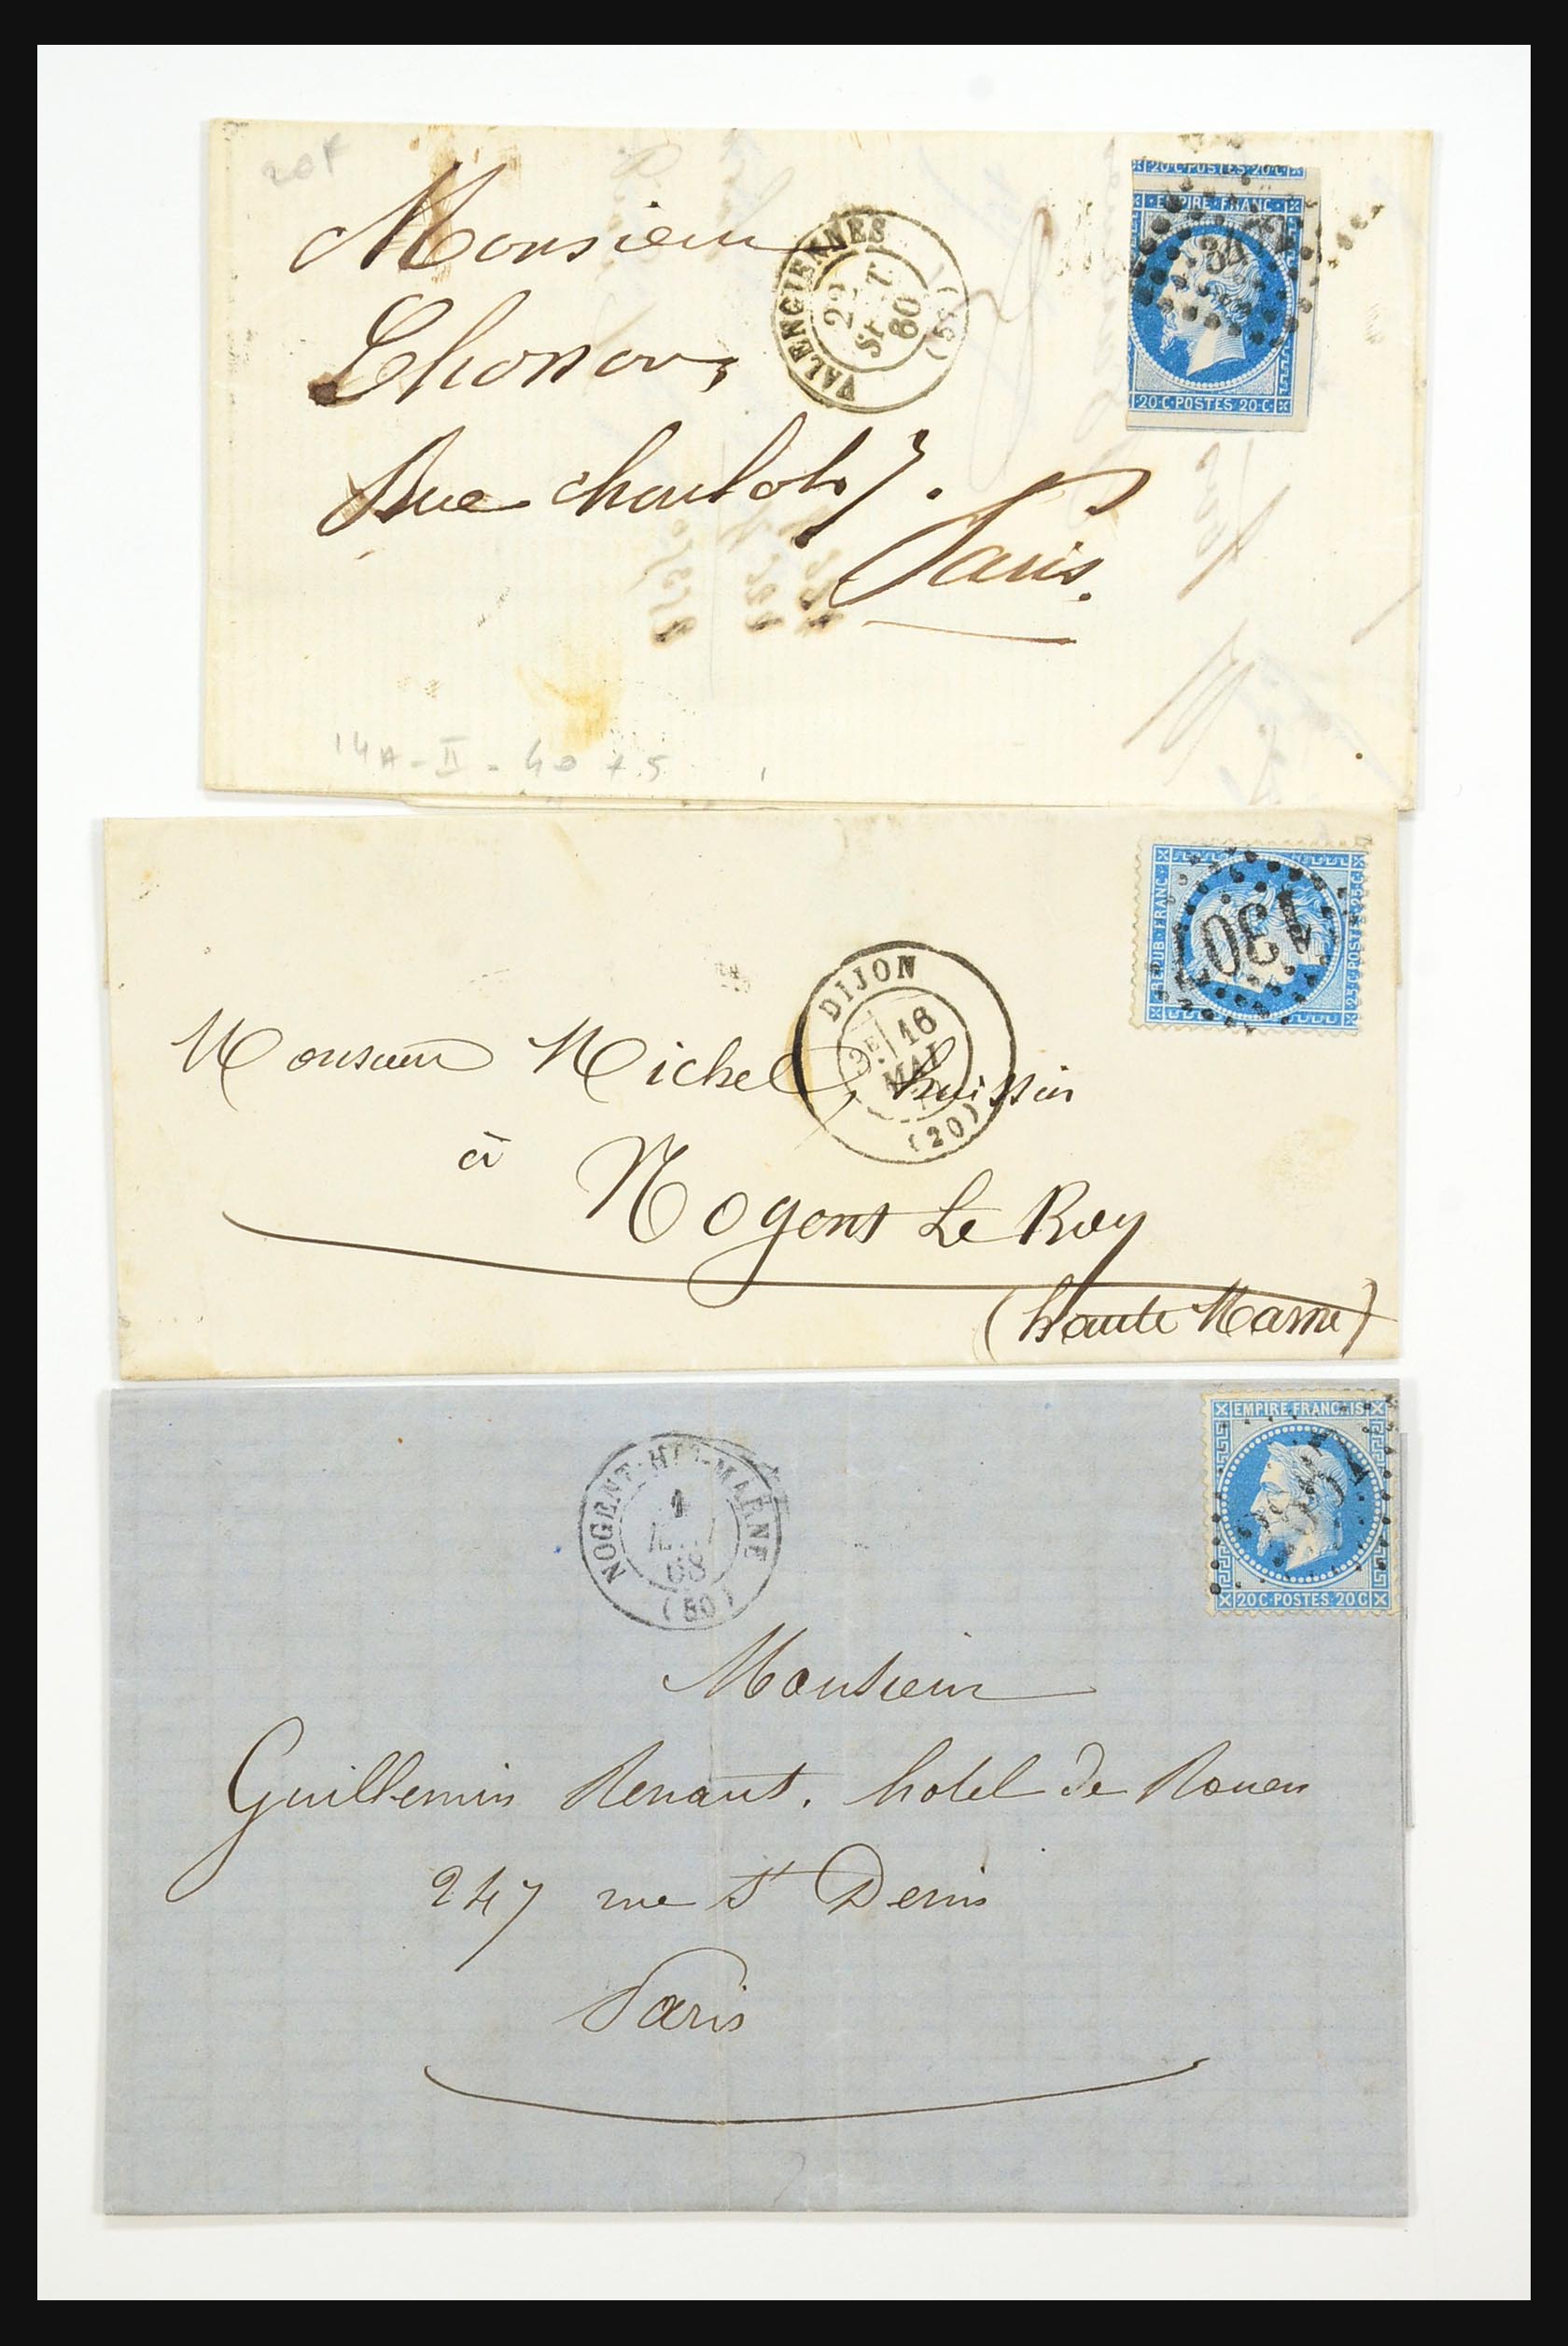 20f
20·C·POSTES·20·C
EMPIRE·FRANC·
20·C·POSTES·20·C·
VALENCIENNES
22
SEPT.
60
Monsieur
Rue
Paris.
14A-II-40 + 5
REPUB·FRANC·
25·C·POSTES·25·C
1307
DIJON
2E 16
MAI
(20)
Monsieur Michel, huissier
à
Nogent Le Roy
(haute Marne)
EMPIRE FRANÇAIS
20C·POSTES·20C
NOGENT-HTE-MARNE
1
68
(50)
Monsieur
Guillemin Renaut. hotel de Rouen
247 rue St Denis
Paris